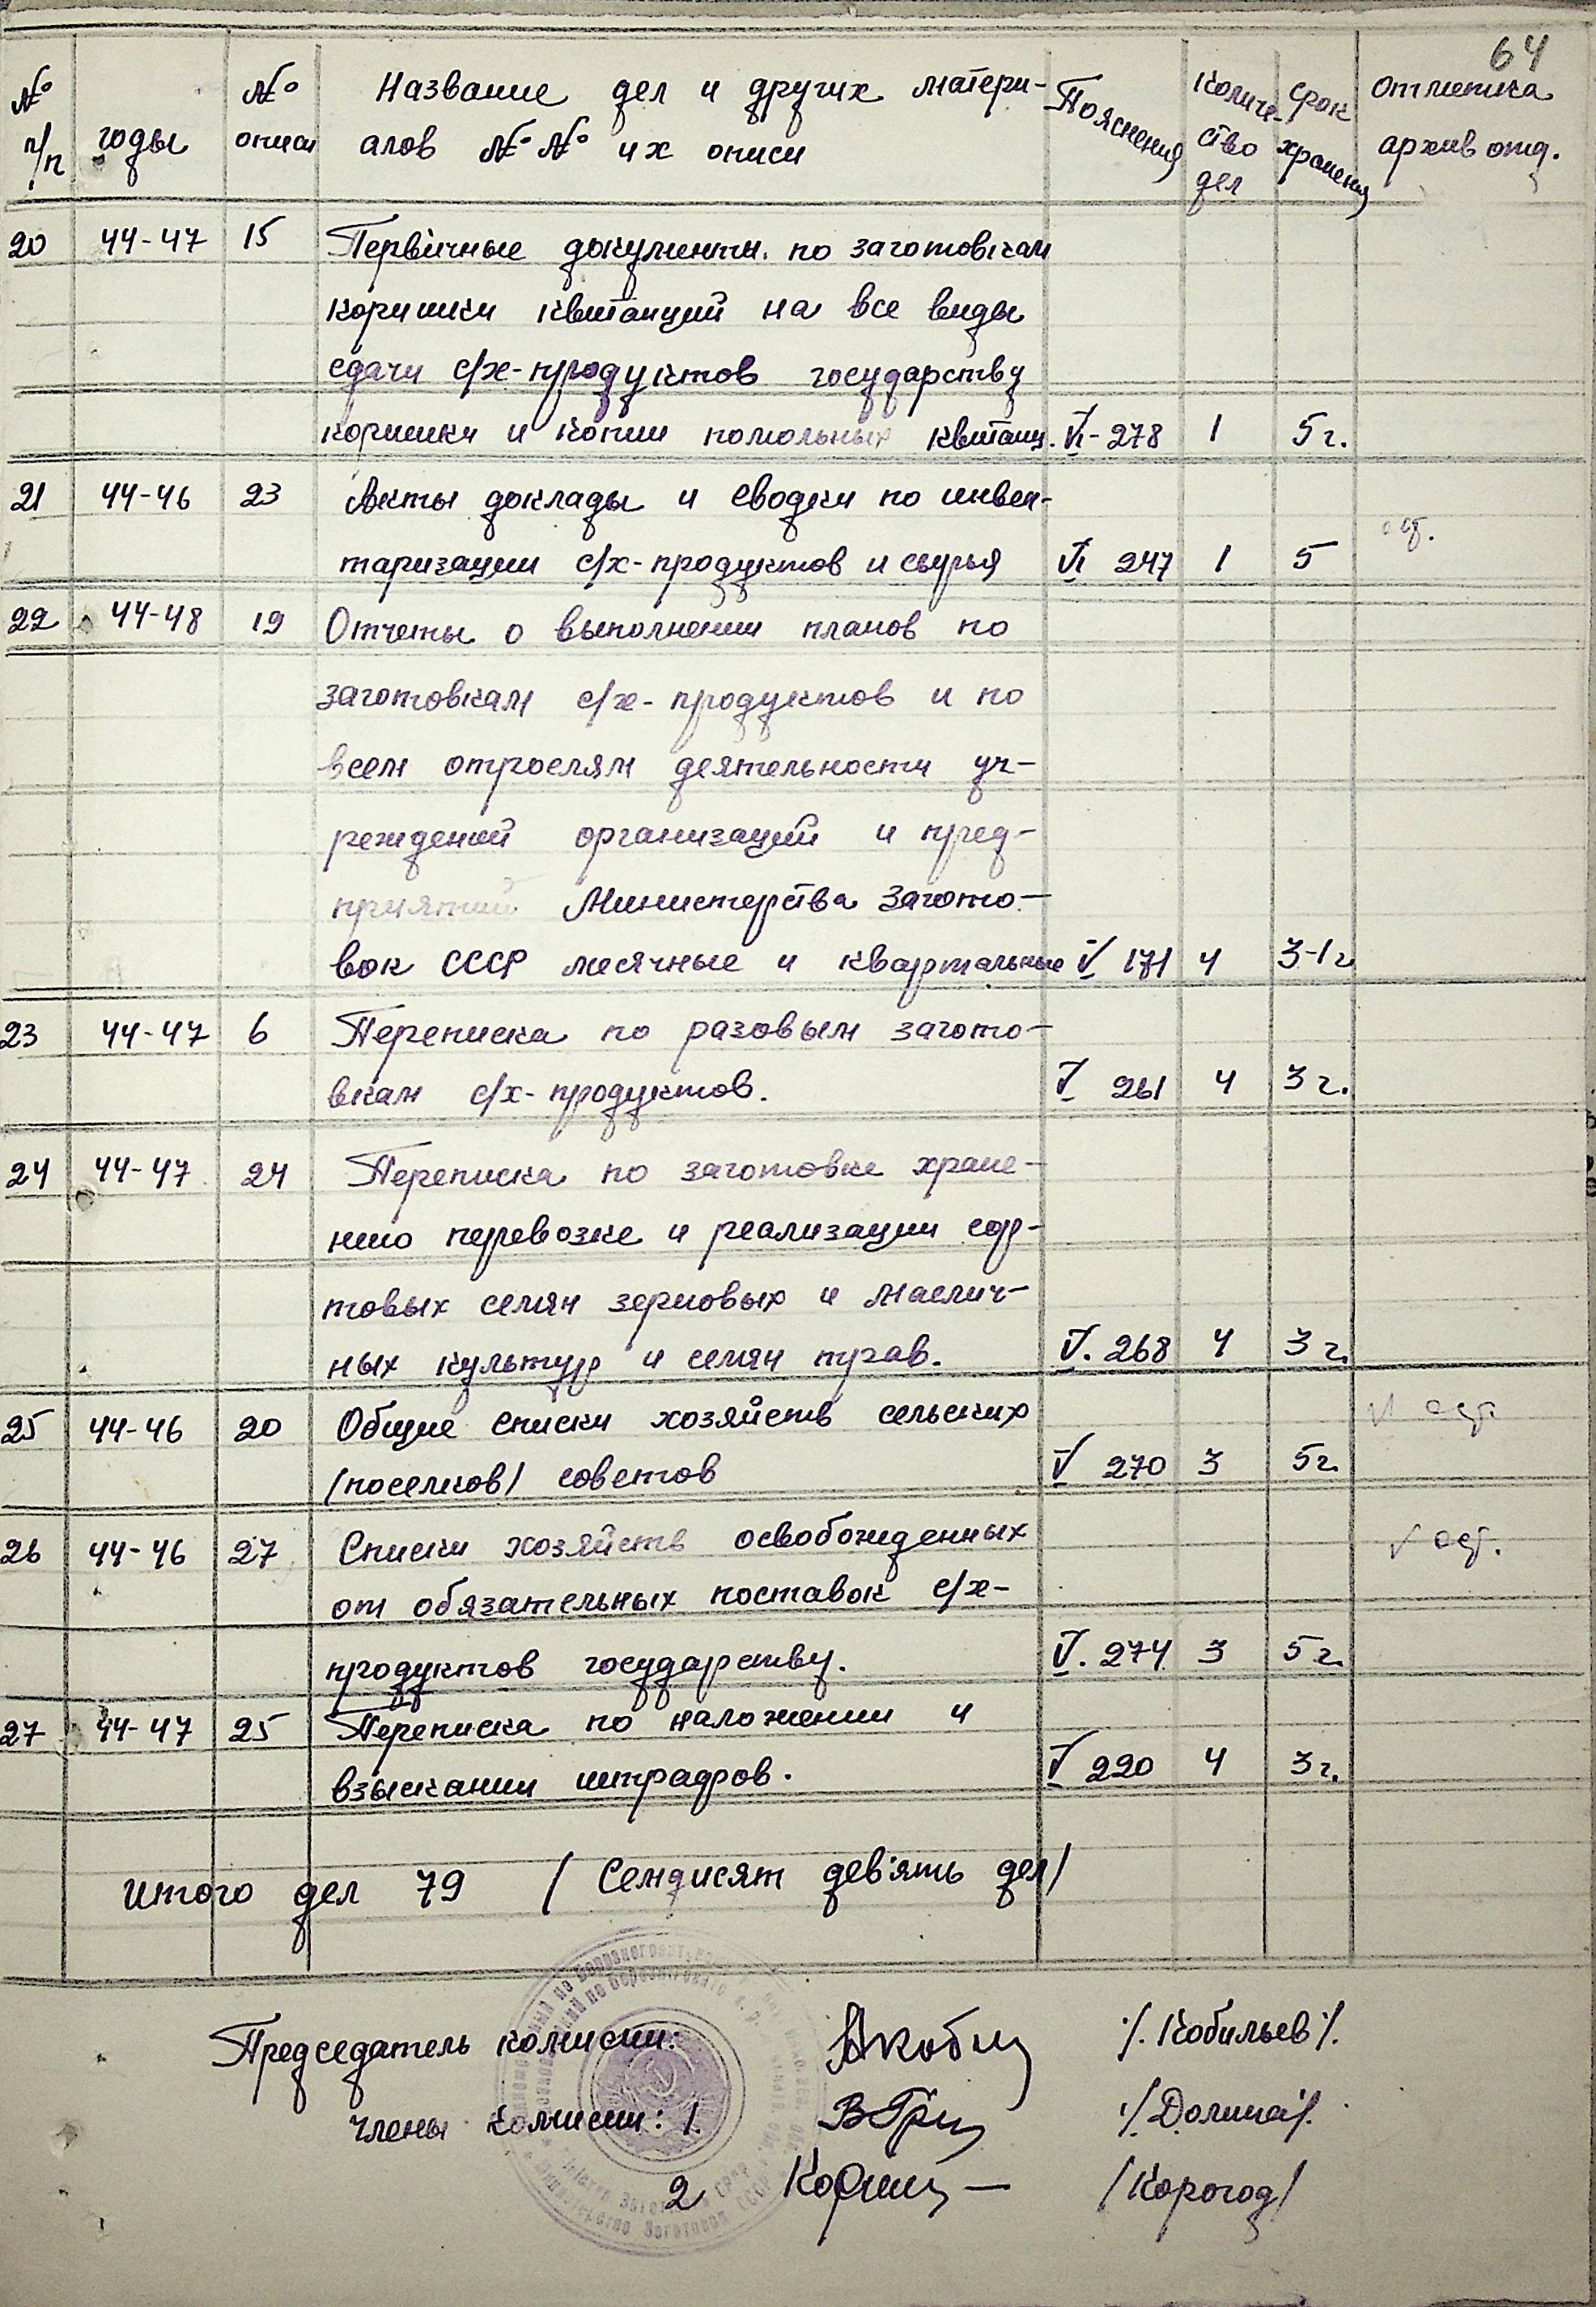 64
№ п/п годы № описи Название дел и других матери- Пояснения Количе- срок Отметка
алов №№ их описи ство дел хранения архив отд.
20 44-47 15 Первичные документы. по заготовкам
коришки квитанций на все виды
сдачи с/х-продуктов государству
коришки и копии помольных квитанц. VI-278 1 5 г.
21 44-46 23 Акты доклады и сводки по инвен-
таризации с/х-продуктов и сырья VI 247 1 5
22 44-48 19 Отчеты о выполнении планов по
заготовкам с/х-продуктов и по
всем отрослям деятельности уч-
реждений организаций и пред-
приятий Министерства Загото-
вок СССР месячные и квартальные V 171 4 3-1 г
23 44-47 6 Переписка по разовым загото-
вкам с/х-продуктов. V 261 4 3 г.
24 44-47 24 Переписка по заготовке хране-
нию перевозке и реализации сор-
товых семян зерновых и маслич-
ных культур и семян трав. V. 268 4 3 г.
25 44-46 20 Общие списки хозяйств сельских
/поселков/ советов V 270 3 5 г.
26 44-46 27 Списки хозяйств освобожденных
от обязательных поставок с/х-
продуктов государству. V. 274 3 5 г.
27 44-47 25 Переписка по наложении и
взыскании штрафов. V 220 4 3 г.
Итого дел 79 / Семдисят девять дел/
Председатель комисии: /. Кобильев /.
члены комисии: 1. /Долина/.
2 /Корогод/